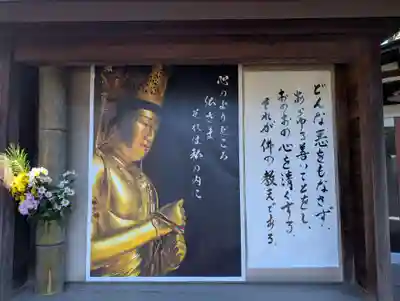 心のよりどころ
仏さま
それは私の内に
どんな悪をもなさず、
あらゆる善いことをし、
おのおの心を清くする、
それが佛の教えである。